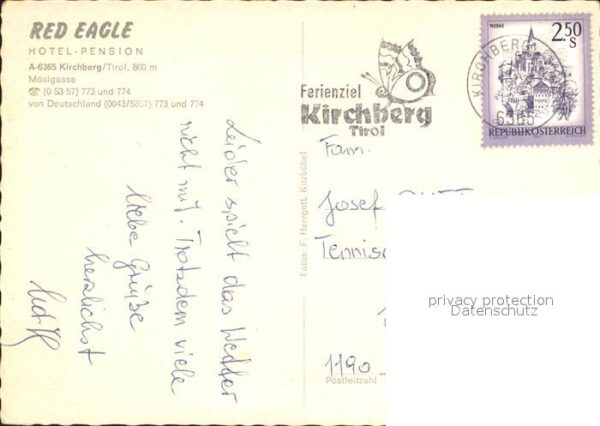 RED EAGLE
HOTEL-PENSION
A-6365 Kirchberg/Tirol, 860 m
Möslgasse
☎ (0 53 57) 773 und 774
von Deutschland (0043/5357) 773 und 774
Leider spielt das Wetter
nicht mit. Trotzdem viele
liebe Grüße
herzlichst
Fotos: F. Herrgott, Kitzbühel
Ferienziel
Kirchberg
Tirol
KIRCHBERG
6365
2.50
S
REPUBLIK ÖSTERREICH
Fam.
Josef
1190
Postleitzahl
privacy protection
Datenschutz